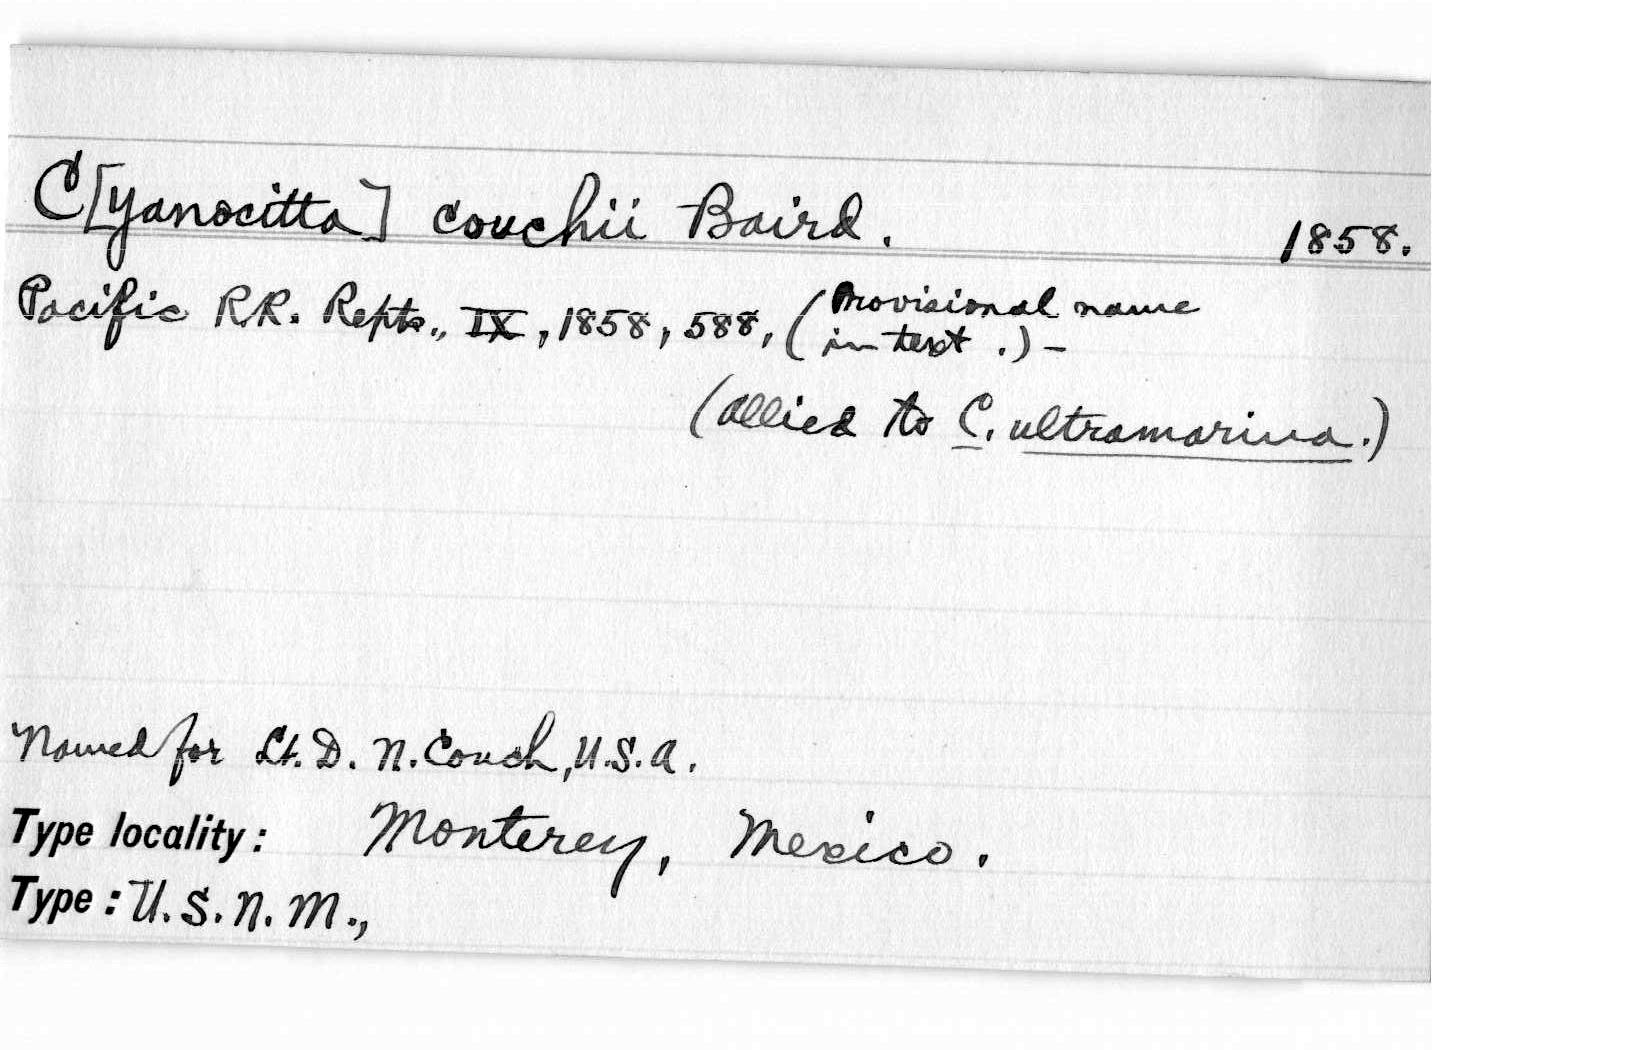 C[yanocitta] couchii Baird. 1858.
Pacific R.R. Repts., IX, 1858, 588, (Provisional name
in text.) –
(allied to C. ultramarina.)
Named for Lt. D. N. Couch, U.S.A.
Type locality: Monterey, Mexico.
Type: U.S.N.M.,